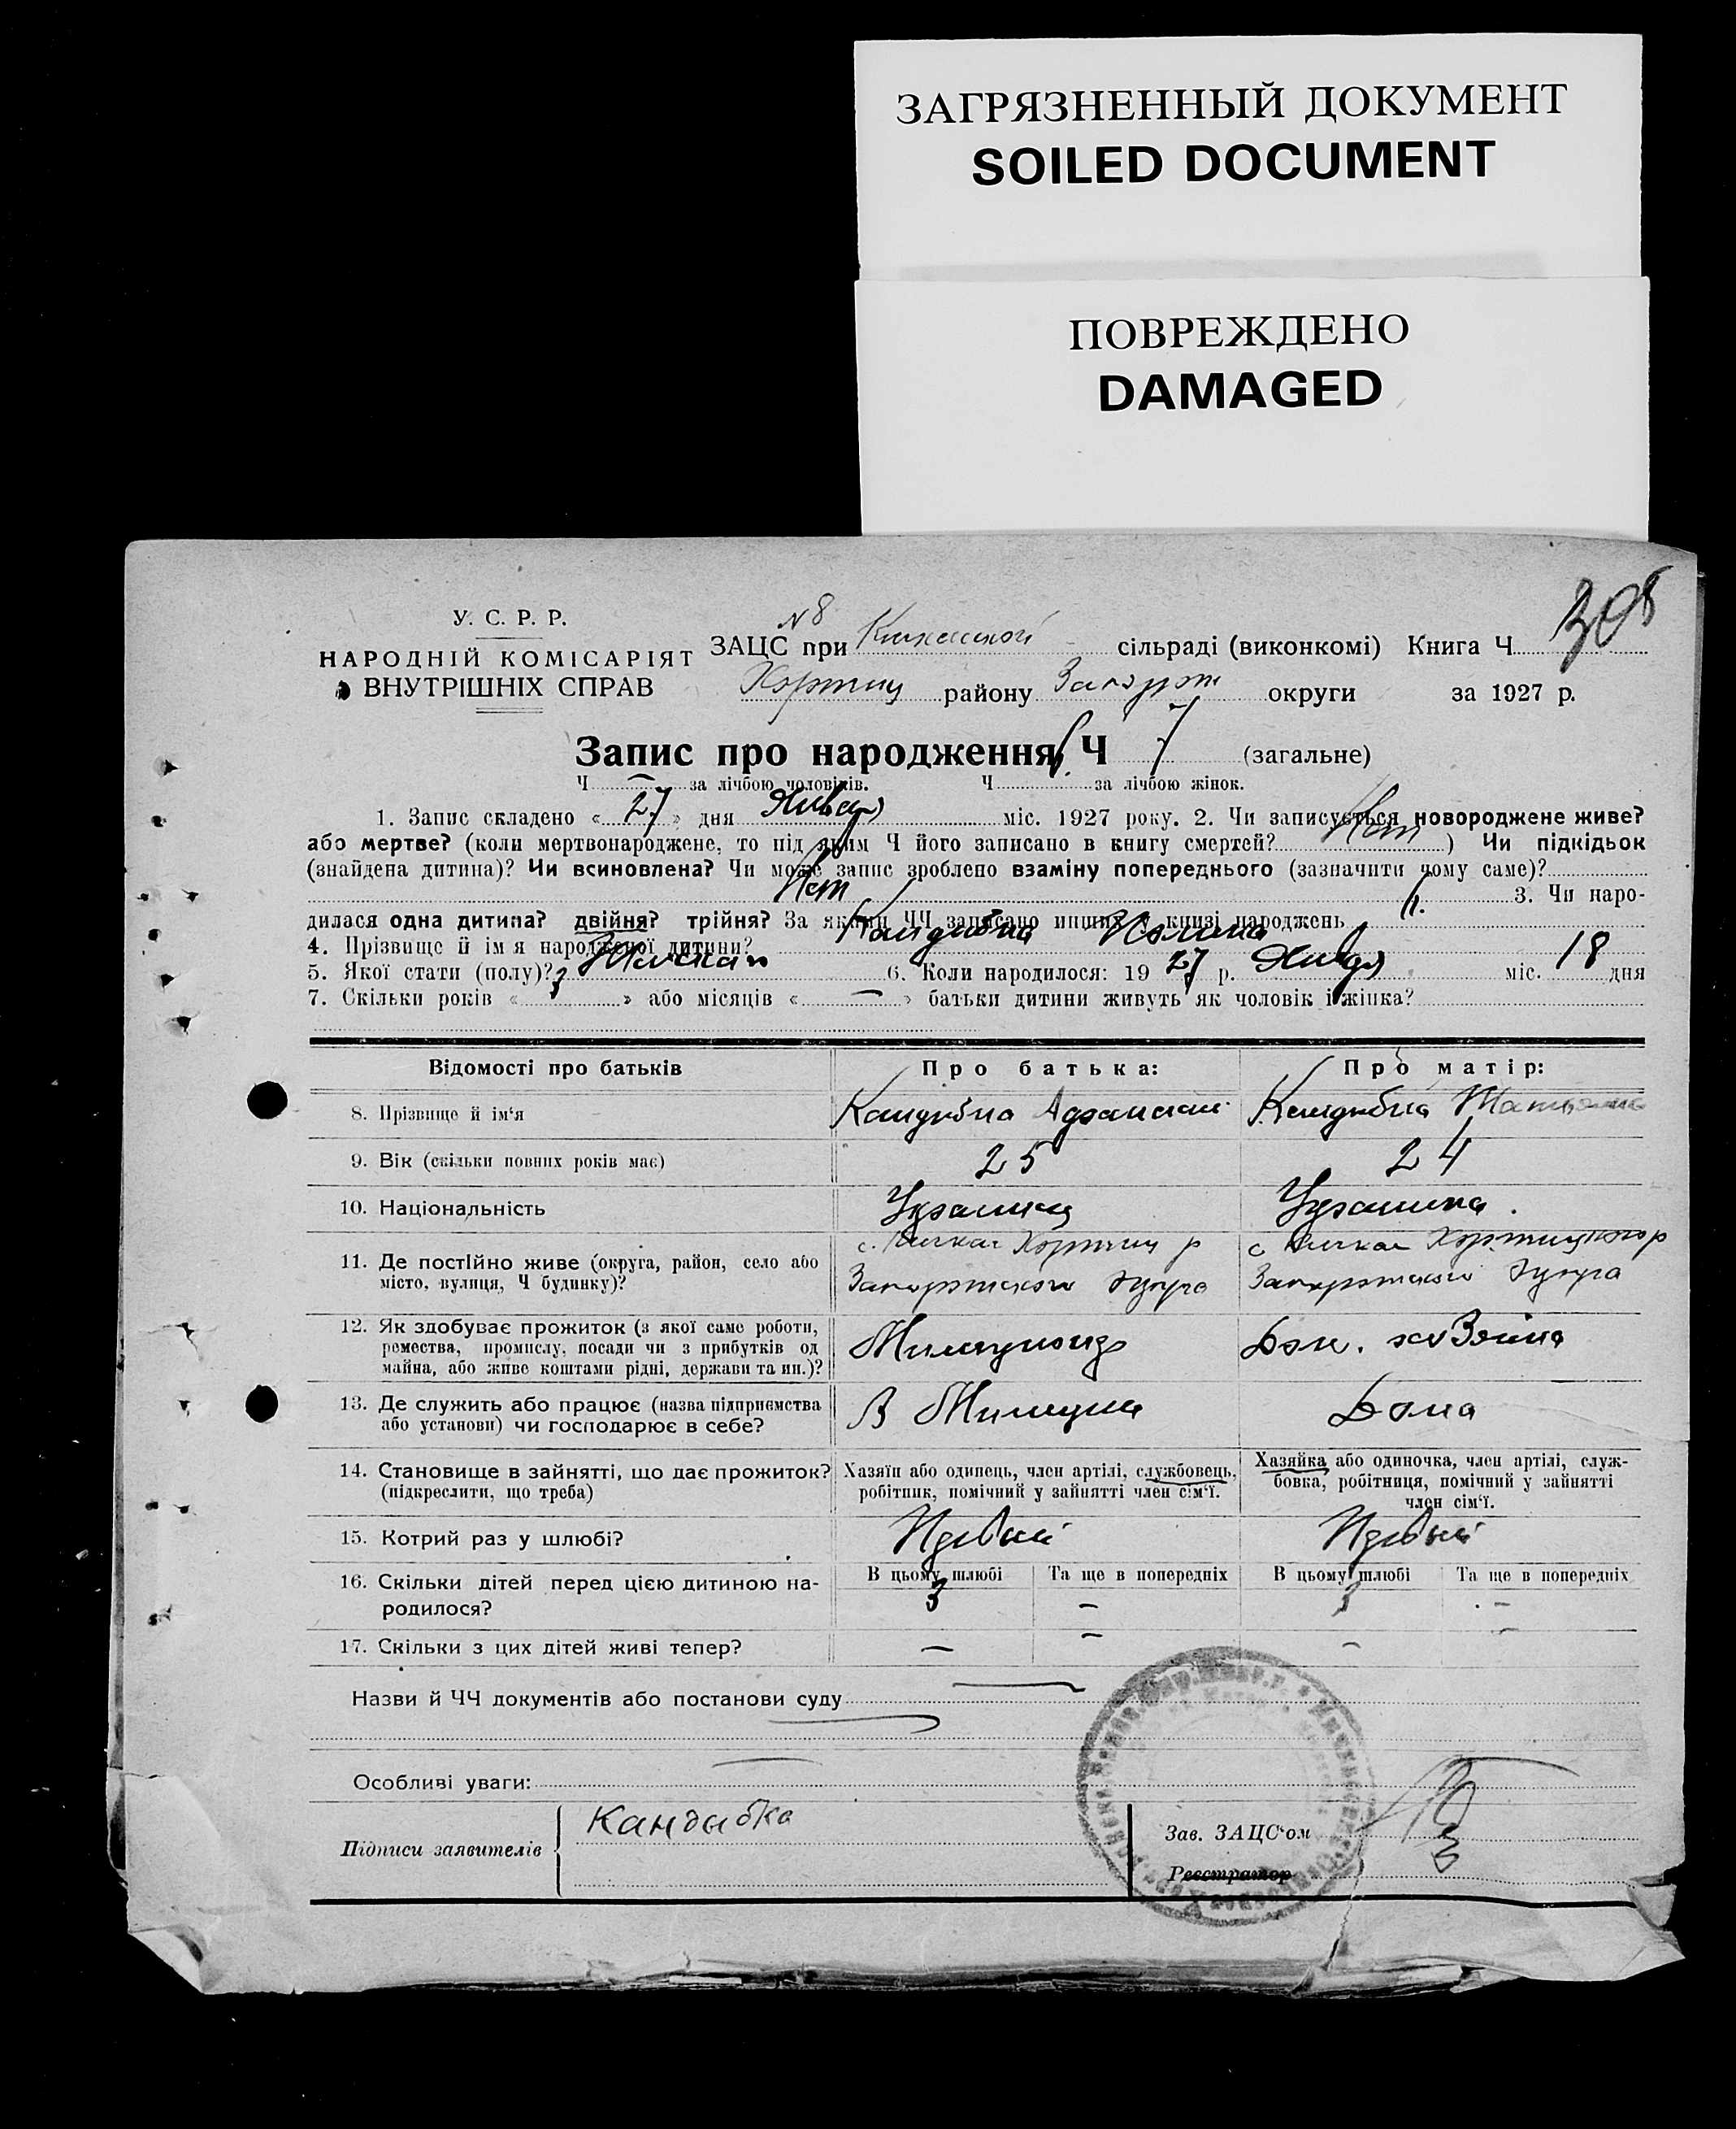 ЗАГРЯЗНЕННЫЙ ДОКУМЕНТ
SOILED DOCUMENT
ПОВРЕЖДЕНО
DAMAGED
У. С. Р. Р.
НАРОДНІЙ КОМІСАРІЯТ
ВНУТРІШНІХ СПРАВ
№ 8
ЗАЦС при сільраді (виконкомі) Книга Ч
Хортиц району округи за 1927 р.
Запис про народження Ч 7 (загальне)
Ч — за лічбою чоловіків. Ч за лічбою жінок.
1. Запис складено « 27 » дня Января міс. 1927 року. 2. Чи записується новороджене живе?
або мертве? (коли мертвонароджене, то під яким Ч його записано в книгу смертей? Нет ) Чи підкідьок
(знайдена дитина)? Чи всиновлена? Чи може запис зроблено взаміну попереднього (зазначити чому саме)?
Нет 3. Чи наро-
дилася одна дитина? двійня? трійня? За якими ЧЧ записано инших у книзі народжень
4. Прізвище й ім'я народженої дитини? Кандыбка Полина
5. Якої стати (полу)? Женская 6. Коли народилося: 19 27 р. Января міс. 18 дня
7. Скільки років « 3 » або місяців « — » батьки дитини живуть як чоловік і жінка?
Відомості про батьків Про батька: Про матір:
8. Прізвище й ім'я Кандыбка Кандыбка Татьяна
9. Вік (скільки повних років має) 25 24
10. Національність Украинец Украинка.
11. Де постійно живе (округа, район, село або
місто, вулиця, Ч будинку)?
с. Кичкас Хортиц р с Кичкас Хортицкого р
Запорожского Округа Запорожского Округа
12. Як здобуває прожиток (з якої саме роботи,
ремества, промислу, посади чи з прибутків од
майна, або живе коштами рідні, держави та ин.)?
Милиционер Дом. хозяйка
13. Де служить або працює (назва підприємства
або установи) чи господарює в себе?
В Милиции Дома
14. Становище в зайнятті, що дає прожиток?
(підкреслити, що треба)
Хазяїн або одинець, член артілі, службовець,
робітник, помічний у зайнятті член сім'ї.
Хазяйка або одиночка, член артілі, служ-
бовка, робітниця, помічний у зайнятті
член сім'ї.
15. Котрий раз у шлюбі? Первый Первый
16. Скільки дітей перед цією дитиною на-
родилося?
В цьому шлюбі Та ще в попередніх В цьому шлюбі Та ще в попередніх
3 — 3 —
17. Скільки з цих дітей живі тепер? — — — —
Назви й ЧЧ документів або постанови суду
Особливі уваги:
Підписи заявителів Кандыбка
Зав. ЗАЦС'ом
Реєстратор